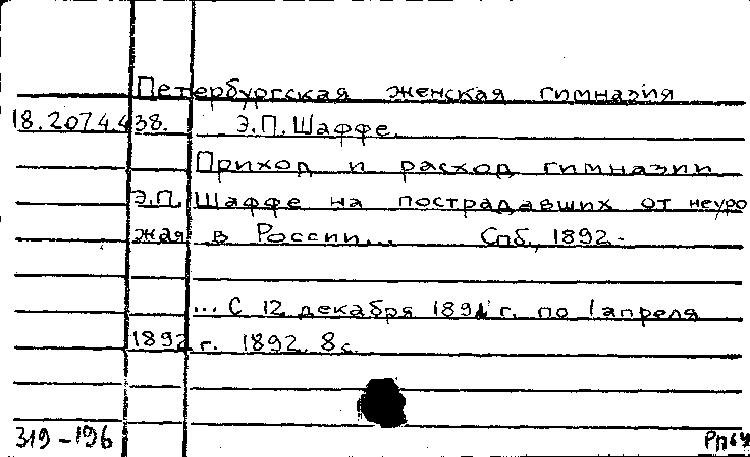 Петербургская женская гимназия
18.207.4.438. Э.П. Шаффе.
Приход и расход гимназии
Э.П. Шаффе на пострадавших от неуро
жая в России... Спб., 1892.-
... С 12 декабря 1891 г. по 1 апреля
1892 г. 1892. 8 с.
319-196